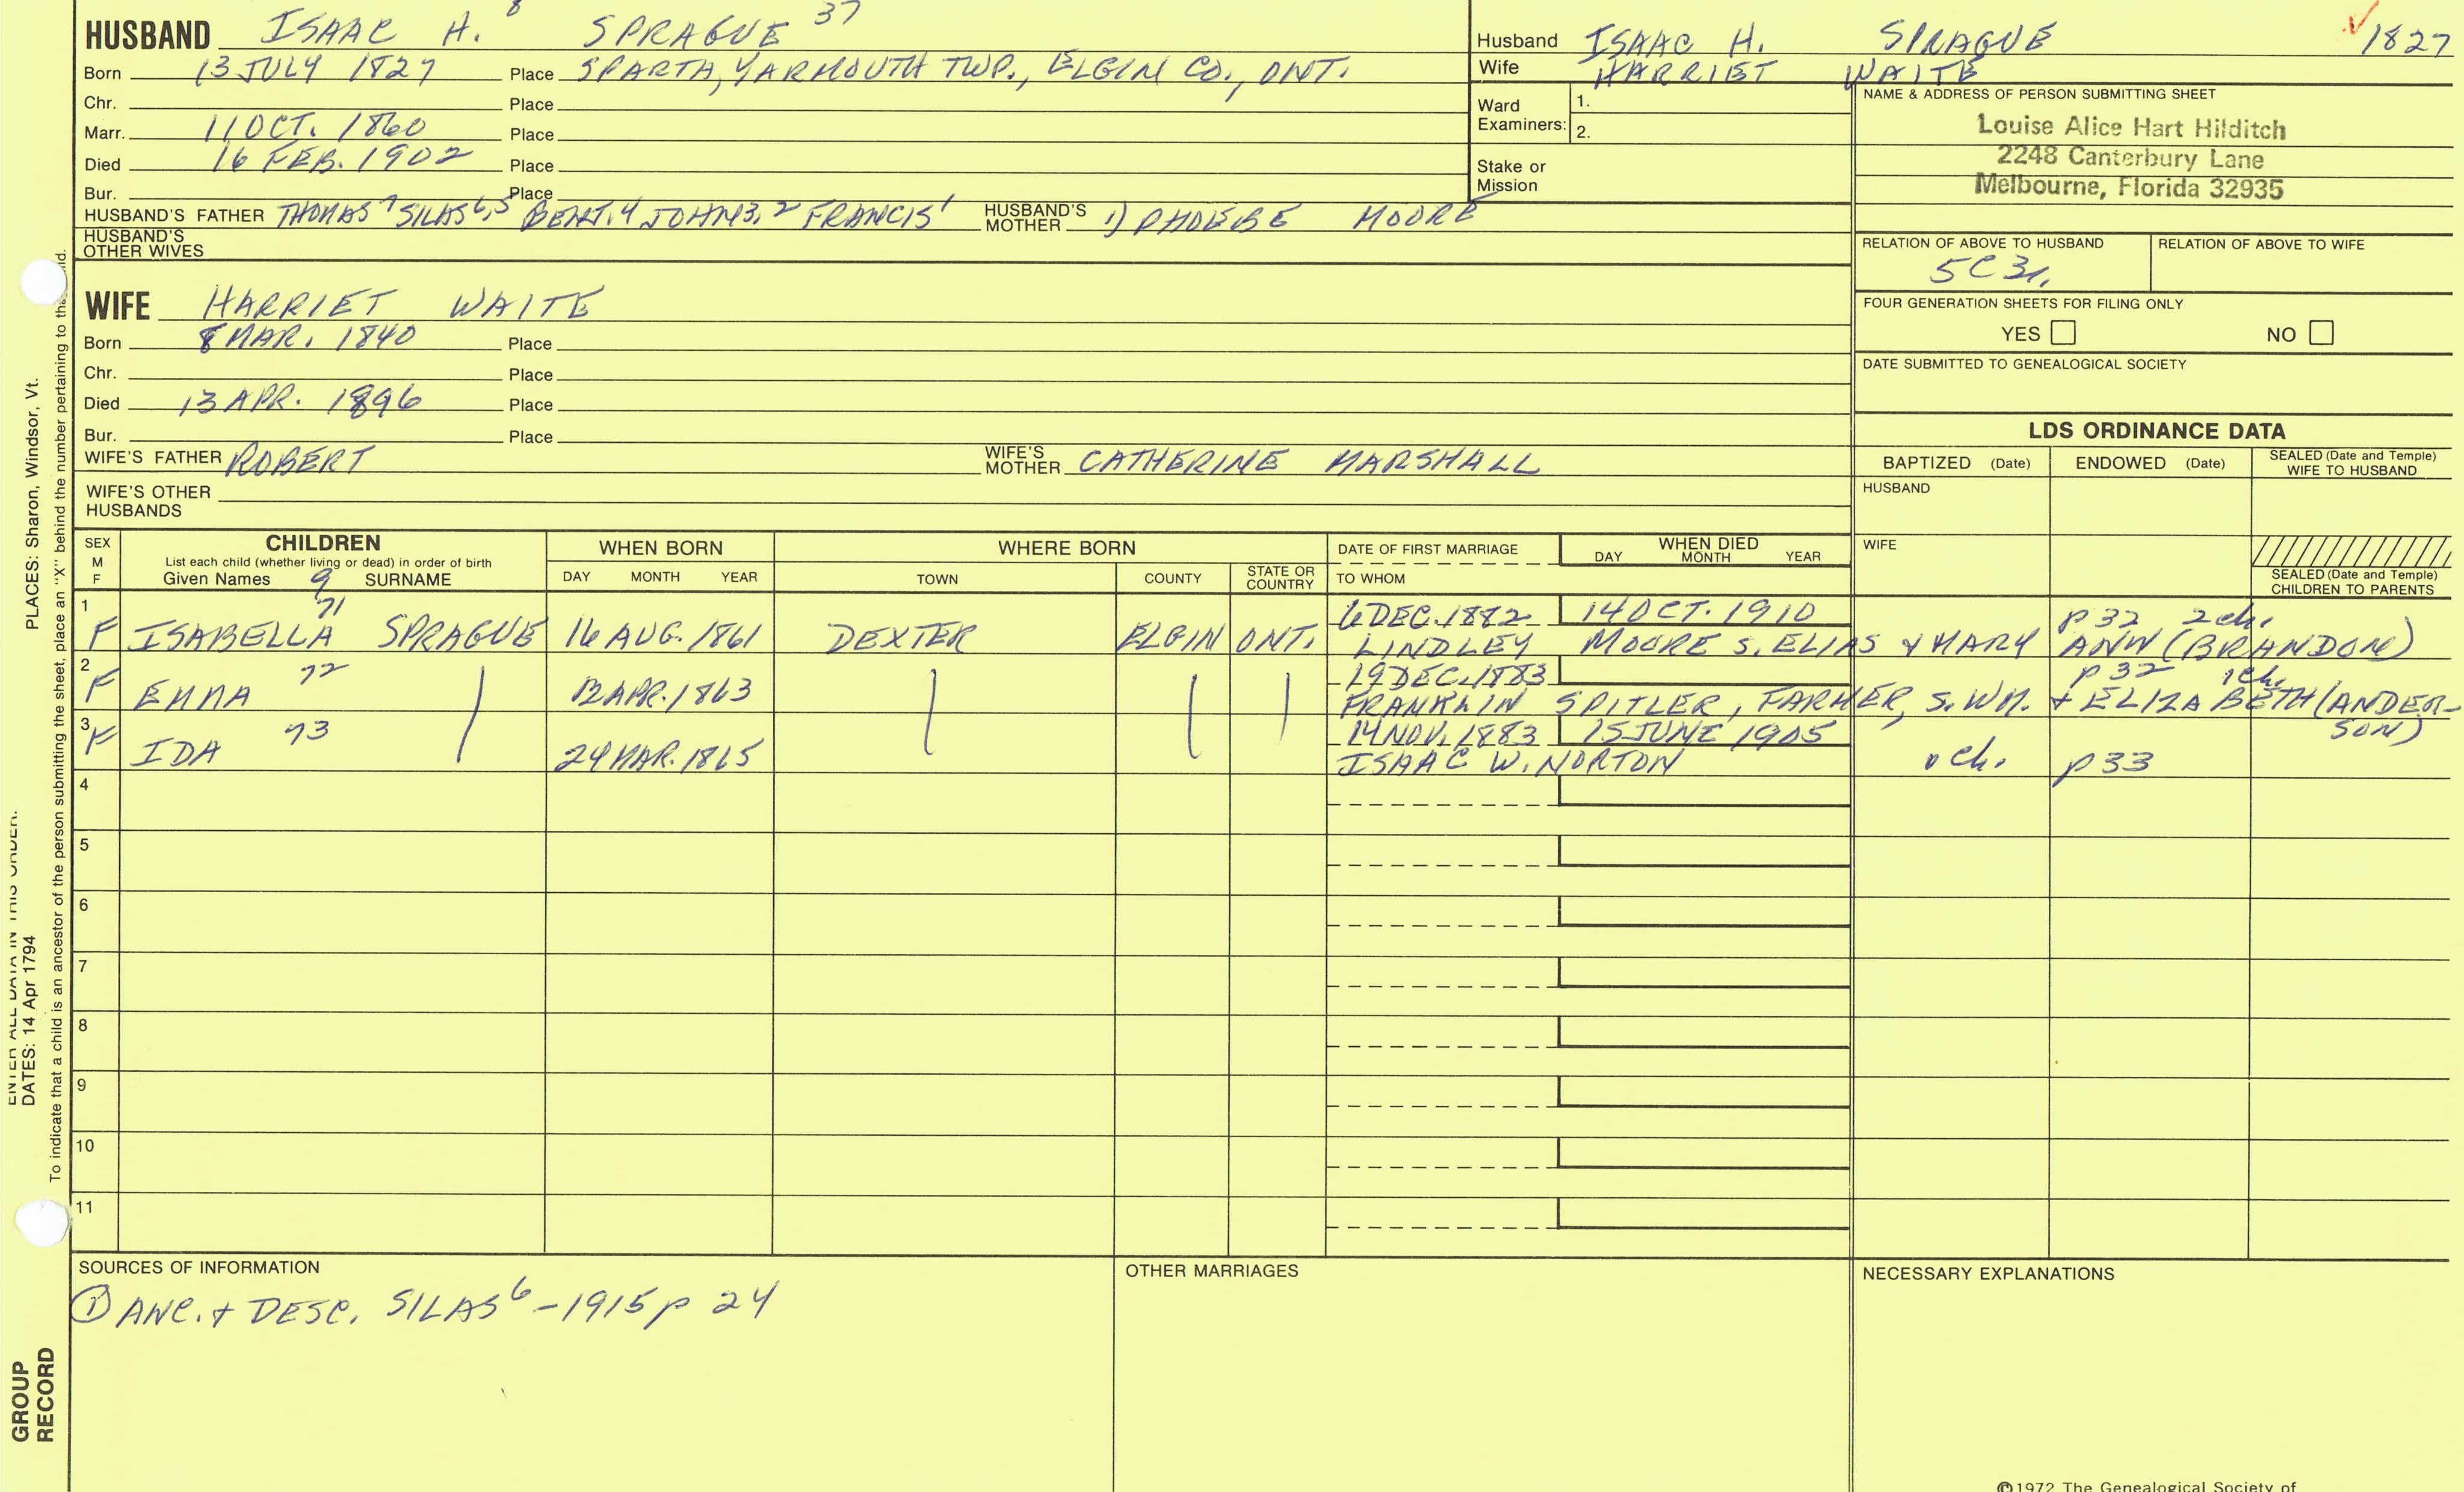 HUSBAND ISAAC H. 8 SPRAGUE 37
Born 13 JULY 1827 Place SPARTA, YARMOUTH TWP., ELGIN CO., ONT.
Chr. Place
Marr. 11 OCT. 1860 Place
Died 16 FEB. 1902 Place
Bur. Place
HUSBAND'S FATHER THOMAS 7 SILAS 6,5 BENJ. 4 JOHN 3,2 FRANCIS 1 HUSBAND'S MOTHER 1) PHOEBE MOORE
HUSBAND'S OTHER WIVES
WIFE HARRIET WAITE
Born 8 MAR. 1840 Place
Chr. Place
Died 13 APR. 1896 Place
Bur. Place
WIFE'S FATHER ROBERT WIFE'S MOTHER CATHERINE MARSHALL
WIFE'S OTHER HUSBANDS
Husband ISAAC H. SPRAGUE ✓ 1827
Wife HARRIET WAITE
Ward Examiners: 1.
2.
Stake or Mission
NAME & ADDRESS OF PERSON SUBMITTING SHEET
Louise Alice Hart Hilditch
2248 Canterbury Lane
Melbourne, Florida 32935
RELATION OF ABOVE TO HUSBAND RELATION OF ABOVE TO WIFE
5C3r.
FOUR GENERATION SHEETS FOR FILING ONLY
YES NO
DATE SUBMITTED TO GENEALOGICAL SOCIETY
LDS ORDINANCE DATA
BAPTIZED (Date) ENDOWED (Date) SEALED (Date and Temple) WIFE TO HUSBAND
HUSBAND
WIFE
SEALED (Date and Temple) CHILDREN TO PARENTS
SEX M F CHILDREN WHEN BORN WHERE BORN DATE OF FIRST MARRIAGE WHEN DIED
List each child (whether living or dead) in order of birth
Given Names 9 SURNAME DAY MONTH YEAR TOWN COUNTY STATE OR COUNTRY TO WHOM DAY MONTH YEAR
1 71 6 DEC. 1882 14 OCT. 1910 p 32 2 ch.
F ISABELLA SPRAGUE 16 AUG. 1861 DEXTER ELGIN ONT. LINDLEY MOORE S. ELIAS & MARY ANN (BRANDON)
2 72 19 DEC. 1883 p 32 1 ch.
F EMMA 12 APR. 1863 FRANKLIN SPITLER, FARMER, S. WM. + ELIZABETH (ANDER-
SON)
3 73 14 NOV. 1883 15 JUNE 1905
F IDA 24 MAR. 1865 ISAAC W. NORTON 0 ch. p 33
4
5
6
7
8
9
10
11
SOURCES OF INFORMATION OTHER MARRIAGES NECESSARY EXPLANATIONS
① ANC. + DESC. SILAS 6 – 1915 p 24
©1972 The Genealogical Society of
ENTER ALL DATA IN THIS ORDER.
DATES: 14 Apr 1794 PLACES: Sharon, Windsor, Vt.
To indicate that a child is an ancestor of the person submitting the sheet, place an "X" behind the number pertaining to the child.
GROUP
RECORD